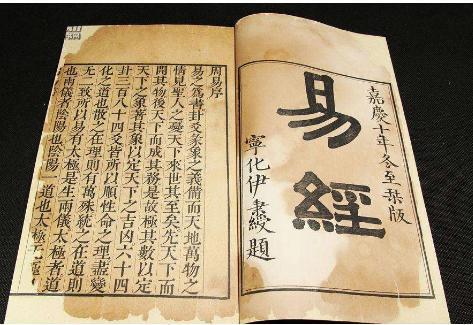 嘉慶十年冬至栞版
易經
寧化伊秉綬題
周易序
易之爲書卦爻彖象之義備而天地萬物之
情見聖人之憂天下來世其至矣先天下而
開其物後天下而成其務是故極其數以定
天下之象著其象以定天下之吉凶六十四
卦三百八十四爻皆所以順性命之理盡變
化之道也散之在理則有萬殊統之在道則
无二致所以易有太極是生兩儀太極者道
也兩儀者陰陽也 道也太極